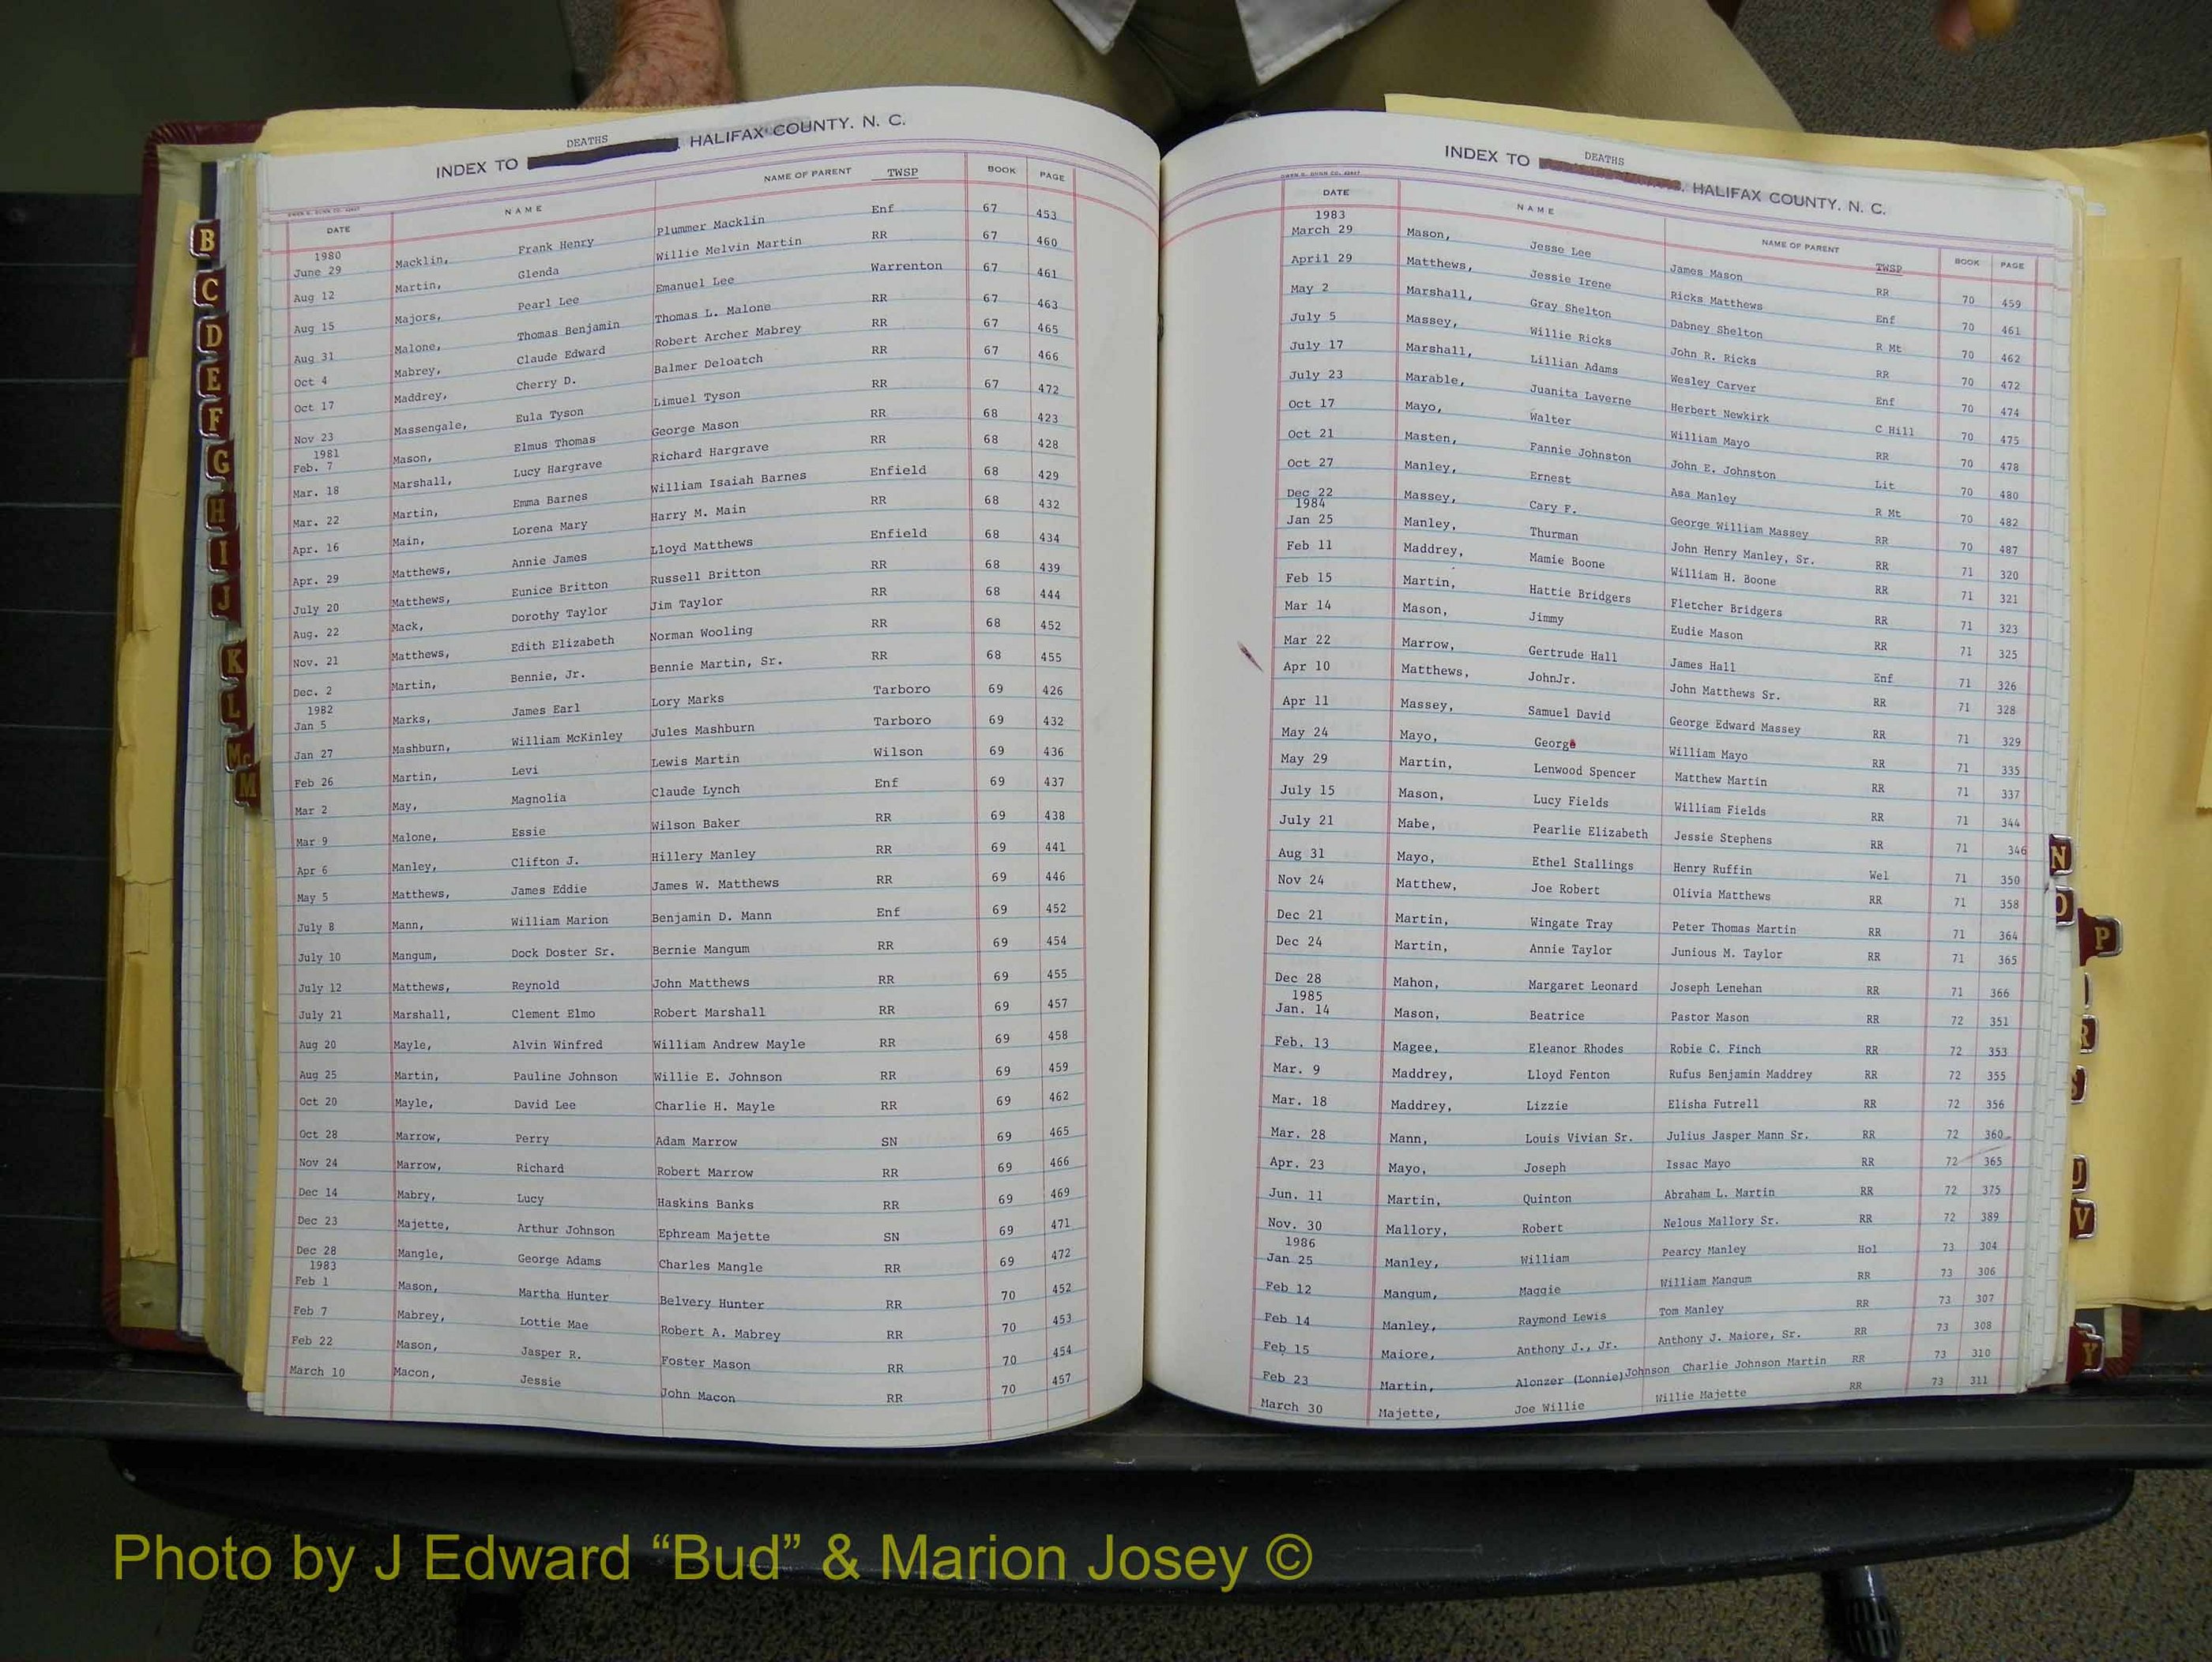 INDEX TO DEATHS HALIFAX COUNTY. N. C.
OWEN G. DUNN CO.
DATE NAME NAME OF PARENT TWSP BOOK PAGE
1980
June 29 Macklin, Frank Henry Plummer Macklin Enf 67 453
Aug 12 Martin, Glenda Willie Melvin Martin RR 67 460
Aug 15 Majors, Pearl Lee Emanuel Lee Warrenton 67 461
Aug 31 Malone, Thomas Benjamin Thomas L. Malone RR 67 463
Oct 4 Mabrey, Claude Edward Robert Archer Mabrey RR 67 465
Oct 17 Maddrey, Cherry D. Balmer Deloatch RR 67 466
Nov 23 Massengale, Eula Tyson Limuel Tyson RR 67 472
1981
Feb. 7 Mason, Elmus Thomas George Mason RR 68 423
Mar. 18 Marshall, Lucy Hargrave Richard Hargrave RR 68 428
Mar. 22 Martin, Emma Barnes William Isaiah Barnes Enfield 68 429
Apr. 16 Main, Lorena Mary Harry M. Main RR 68 432
Apr. 29 Matthews, Annie James Lloyd Matthews Enfield 68 434
July 20 Matthews, Eunice Britton Russell Britton RR 68 439
Aug. 22 Mack, Dorothy Taylor Jim Taylor RR 68 444
Nov. 21 Matthews, Edith Elizabeth Norman Wooling RR 68 452
Dec. 2 Martin, Bennie, Jr. Bennie Martin, Sr. RR 68 455
1982
Jan 5 Marks, James Earl Lory Marks Tarboro 69 426
Jan 27 Mashburn, William McKinley Jules Mashburn Tarboro 69 432
Feb 26 Martin, Levi Lewis Martin Wilson 69 436
Mar 2 May, Magnolia Claude Lynch Enf 69 437
Mar 9 Malone, Essie Wilson Baker RR 69 438
Apr 6 Manley, Clifton J. Hillery Manley RR 69 441
May 5 Matthews, James Eddie James W. Matthews RR 69 446
July 8 Mann, William Marion Benjamin D. Mann Enf 69 452
July 10 Mangum, Dock Doster Sr. Bernie Mangum RR 69 454
July 12 Matthews, Reynold John Matthews RR 69 455
July 21 Marshall, Clement Elmo Robert Marshall RR 69 457
Aug 20 Mayle, Alvin Winfred William Andrew Mayle RR 69 458
Aug 25 Martin, Pauline Johnson Willie E. Johnson RR 69 459
Oct 20 Mayle, David Lee Charlie H. Mayle RR 69 462
Oct 28 Marrow, Perry Adam Marrow SN 69 465
Nov 24 Marrow, Richard Robert Marrow RR 69 466
Dec 14 Mabry, Lucy Haskins Banks RR 69 469
Dec 23 Majette, Arthur Johnson Ephream Majette SN 69 471
Dec 28 Mangle, George Adams Charles Mangle RR 69 472
1983
Feb 1 Mason, Martha Hunter Belvery Hunter RR 70 452
Feb 7 Mabrey, Lottie Mae Robert A. Mabrey RR 70 453
Feb 22 Mason, Jasper R. Foster Mason RR 70 454
March 10 Macon, Jessie John Macon RR 70 457
B
C
D
E
F
G
H
I
J
K
L
Mc
M
INDEX TO DEATHS HALIFAX COUNTY. N. C.
OWEN G. DUNN CO.
DATE NAME NAME OF PARENT TWSP BOOK PAGE
1983
March 29 Mason, Jesse Lee James Mason RR 70 459
April 29 Matthews, Jessie Irene Ricks Matthews Enf 70 461
May 2 Marshall, Gray Shelton Dabney Shelton R Mt 70 462
July 5 Massey, Willie Ricks John R. Ricks RR 70 472
July 17 Marshall, Lillian Adams Wesley Carver Enf 70 474
July 23 Marable, Juanita Laverne Herbert Newkirk C Hill 70 475
Oct 17 Mayo, Walter William Mayo RR 70 478
Oct 21 Masten, Fannie Johnston John E. Johnston Lit 70 480
Oct 27 Manley, Ernest Asa Manley R Mt 70 482
Dec 22 Massey, Cary F. George William Massey RR 70 487
1984
Jan 25 Manley, Thurman John Henry Manley, Sr. RR 71 320
Feb 11 Maddrey, Mamie Boone William H. Boone RR 71 321
Feb 15 Martin, Hattie Bridgers Fletcher Bridgers RR 71 323
Mar 14 Mason, Jimmy Eudie Mason RR 71 325
Mar 22 Marrow, Gertrude Hall James Hall Enf 71 326
Apr 10 Matthews, JohnJr. John Matthews Sr. RR 71 328
Apr 11 Massey, Samuel David George Edward Massey RR 71 329
May 24 Mayo, George William Mayo RR 71 335
May 29 Martin, Lenwood Spencer Matthew Martin RR 71 337
July 15 Mason, Lucy Fields William Fields RR 71 344
July 21 Mabe, Pearlie Elizabeth Jessie Stephens RR 71 346
Aug 31 Mayo, Ethel Stallings Henry Ruffin Wel 71 350
Nov 24 Matthew, Joe Robert Olivia Matthews RR 71 358
Dec 21 Martin, Wingate Tray Peter Thomas Martin RR 71 364
Dec 24 Martin, Annie Taylor Junious M. Taylor RR 71 365
Dec 28 Mahon, Margaret Leonard Joseph Lenehan RR 71 366
1985
Jan. 14 Mason, Beatrice Pastor Mason RR 72 351
Feb. 13 Magee, Eleanor Rhodes Robie C. Finch RR 72 353
Mar. 9 Maddrey, Lloyd Fenton Rufus Benjamin Maddrey RR 72 355
Mar. 18 Maddrey, Lizzie Elisha Futrell RR 72 356
Mar. 28 Mann, Louis Vivian Sr. Julius Jasper Mann Sr. RR 72 360
Apr. 23 Mayo, Joseph Issac Mayo RR 72 365
Jun. 11 Martin, Quinton Abraham L. Martin RR 72 375
Nov. 30 Mallory, Robert Nelous Mallory Sr. RR 72 389
1986
Jan 25 Manley, William Pearcy Manley Hol 73 304
Feb 12 Mangum, Maggie William Mangum RR 73 306
Feb 14 Manley, Raymond Lewis Tom Manley RR 73 307
Feb 15 Maiore, Anthony J., Jr. Anthony J. Maiore, Sr. RR 73 308
Feb 23 Martin, Alonzer (Lonnie)Johnson Charlie Johnson Martin RR 73 310
March 30 Majette, Joe Willie Willie Majette RR 73 311
N
O
P
R
S
U
V
Y
Photo by J Edward “Bud” & Marion Josey ©